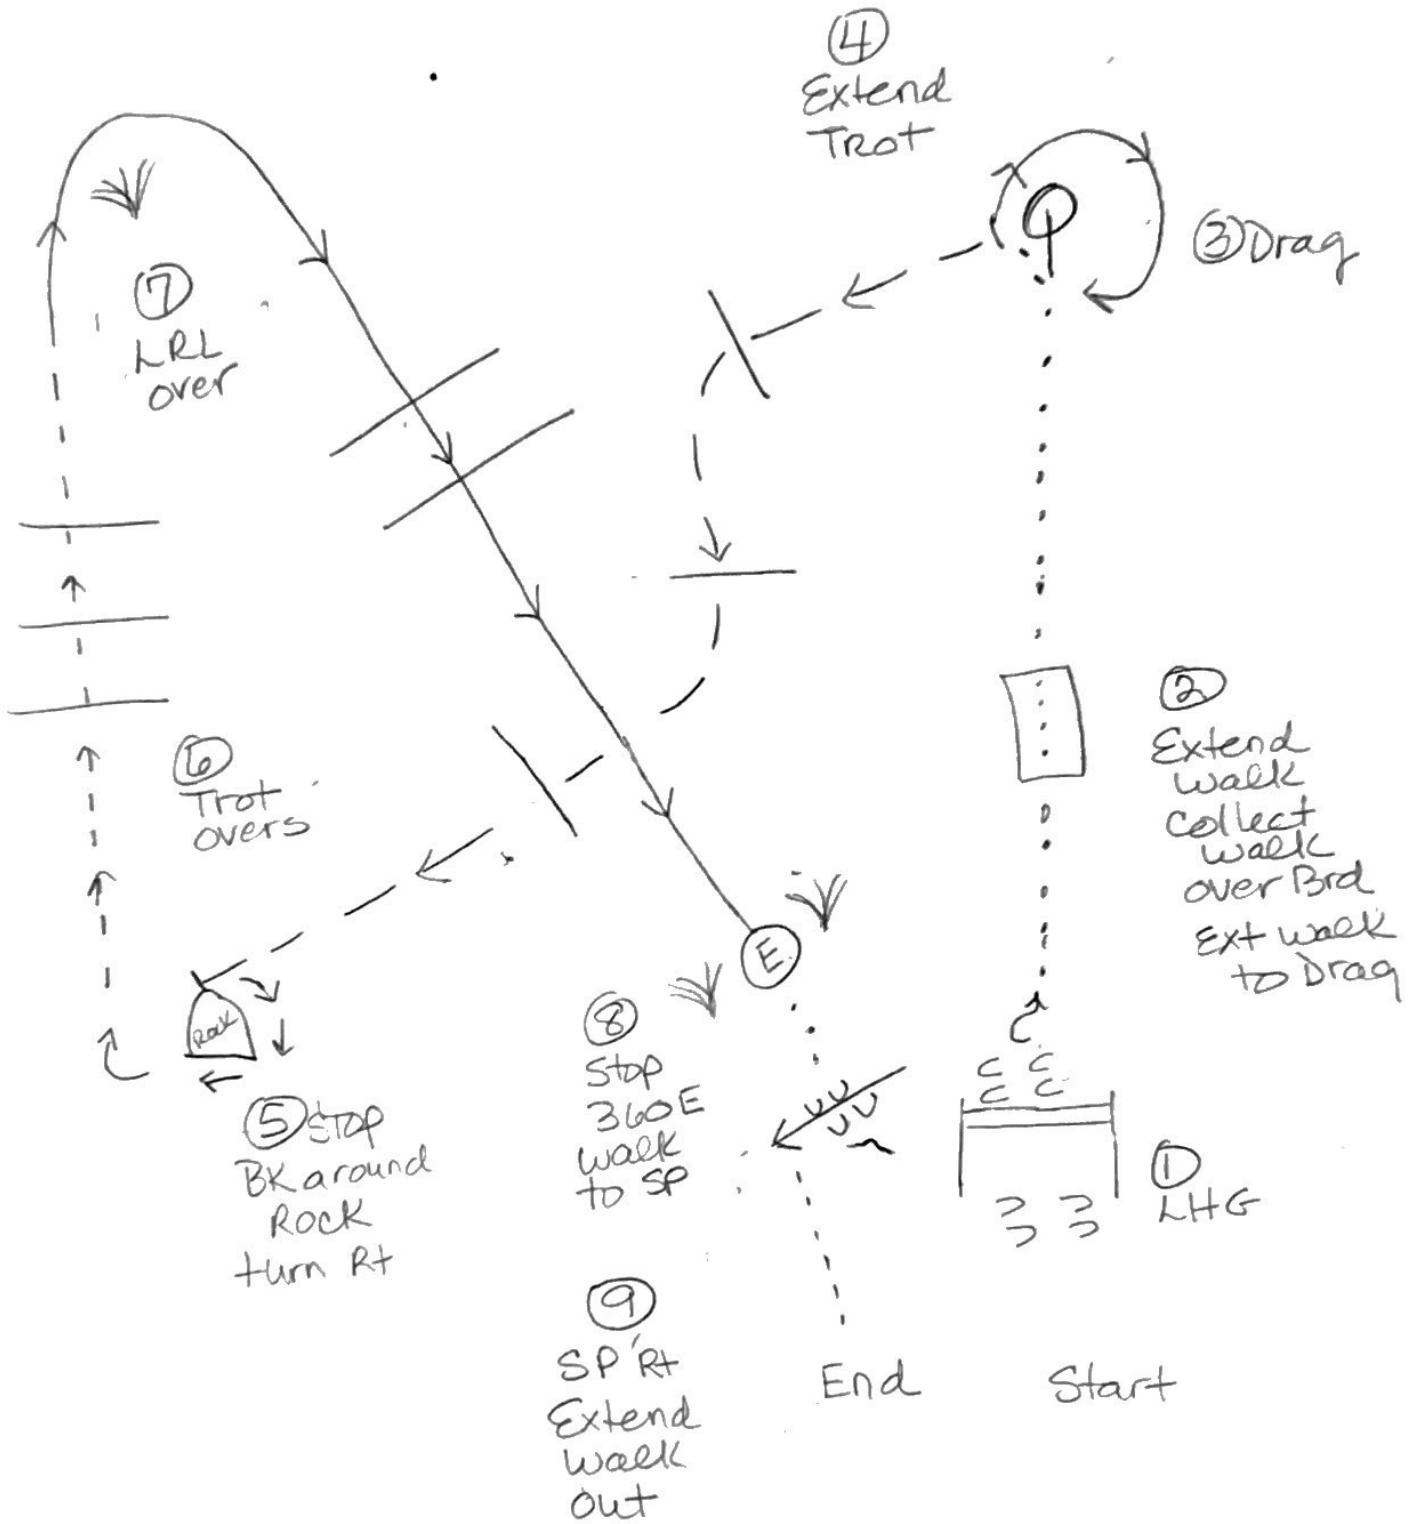 ④
Extend
Trot
③ Drag
⑦
LRL
over
②
Extend
walk
Collect
walk
over Brd
Ext walk
to Drag
⑥
Trot
overs
E
Rock
⑤ STOP
BK around
ROCK
turn Rt
⑧
Stop
360 E
walk
to SP
①
LHG
⑨
SP Rt
Extend
walk
out
End
Start